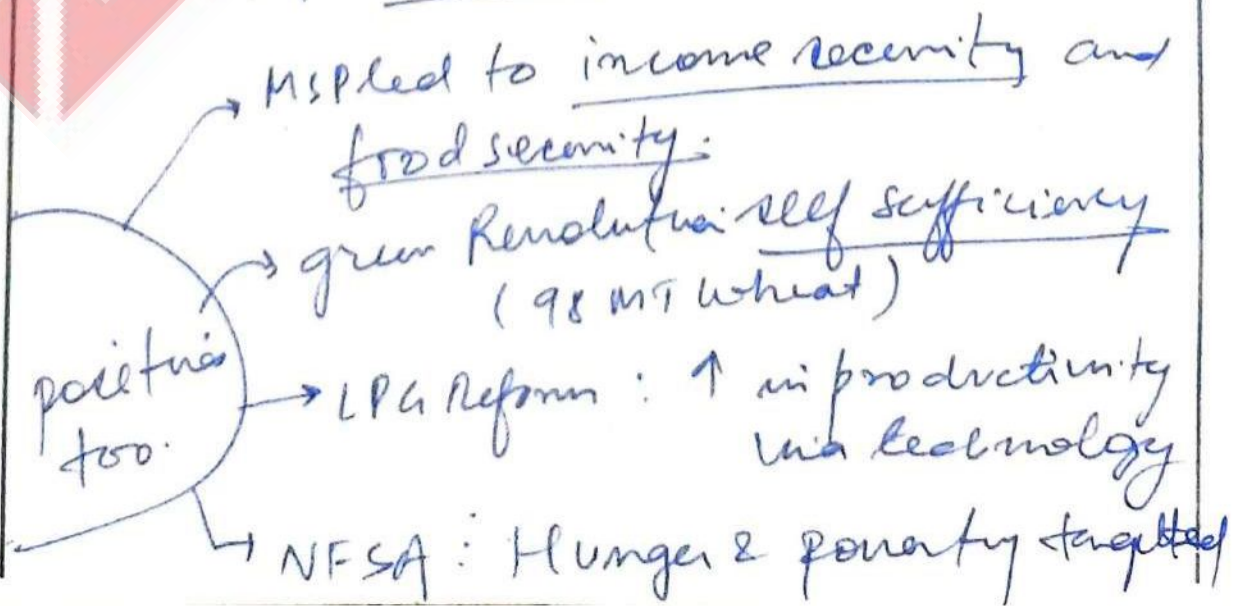 MSP led to income security and
food security.
green Revolution: self sufficiency
(98 MT wheat)
positives
too.
LPG Reform : ↑ in productivity
via technology
NFSA : Hunger & poverty targetted